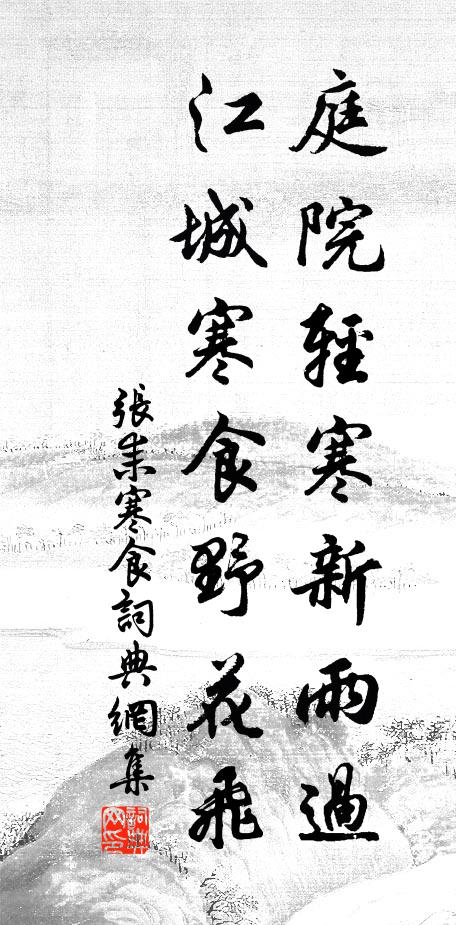 庭院輕寒新雨過
江城寒食野花飛
張耒寒食詞典網集